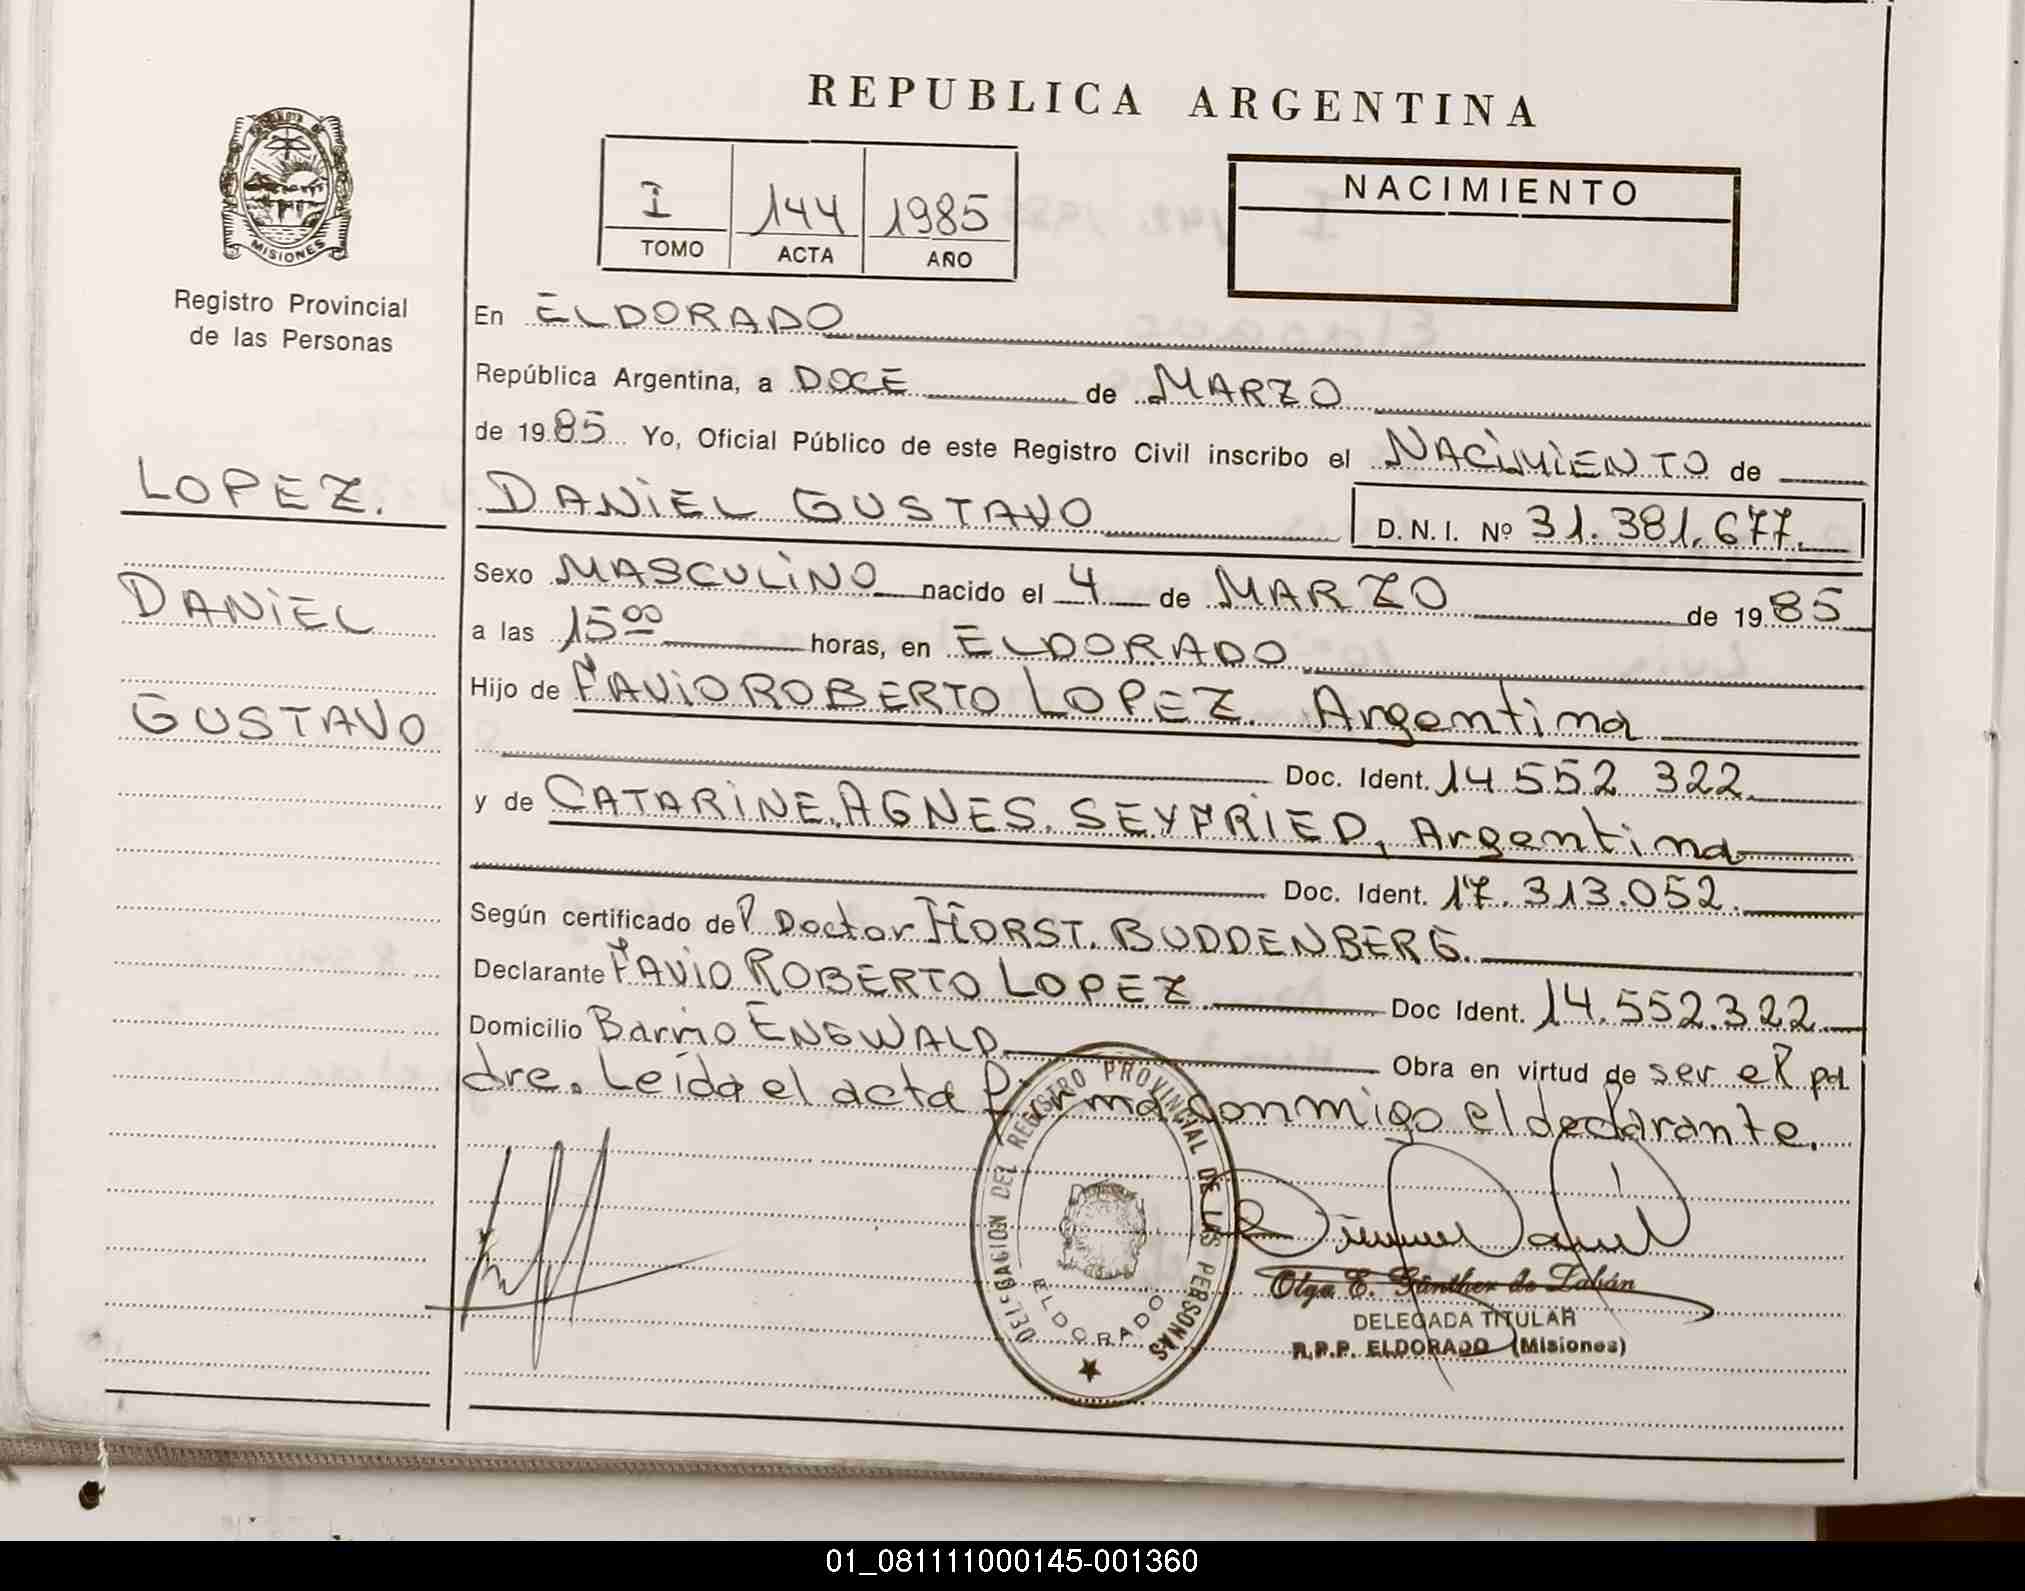 REPUBLICA ARGENTINA
MISIONES
Registro Provincial
de las Personas
I 144 1985
TOMO ACTA AÑO
NACIMIENTO
LOPEZ.
DANIEL
GUSTAVO
En ELDORADO
República Argentina, a DOCE de MARZO
de 1985 Yo, Oficial Público de este Registro Civil inscribo el NACIMIENTO de
DANIEL GUSTAVO D.N.I. Nº 31.381.677.
Sexo MASCULINO nacido el 4 de MARZO de 1985
a las 15⁰⁰ horas, en ELDORADO
Hijo de FAVIO ROBERTO LOPEZ. Argentina
Doc. Ident. 14.552 322.
y de CATARINE.AGNES.SEYFRIED, Argentina
Doc. Ident. 17.313.052.
Según certificado del Doctor HORST. BUDDENBERG.
Declarante FAVIO ROBERTO LOPEZ Doc Ident. 14.552.322
Domicilio Barrio ENGWALD Obra en virtud de ser el pa
dre. Leída el acta firma conmigo el declarante.
DELEGACION DEL REGISTRO PROVINCIAL DE LAS PERSONAS
ELDORADO
Olga E. Günther de Labán
DELEGADA TITULAR
R.P.P. ELDORADO (Misiones)
01_081111000145-001360